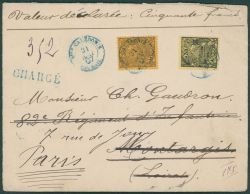 Valeur déclarée: Cinquante francs.
352
CHARGÉ
Monsieur Ch. Gaudron
82e Régiment d'Infanterie
7 rue de Jouy Montargis
Paris (Loiret)